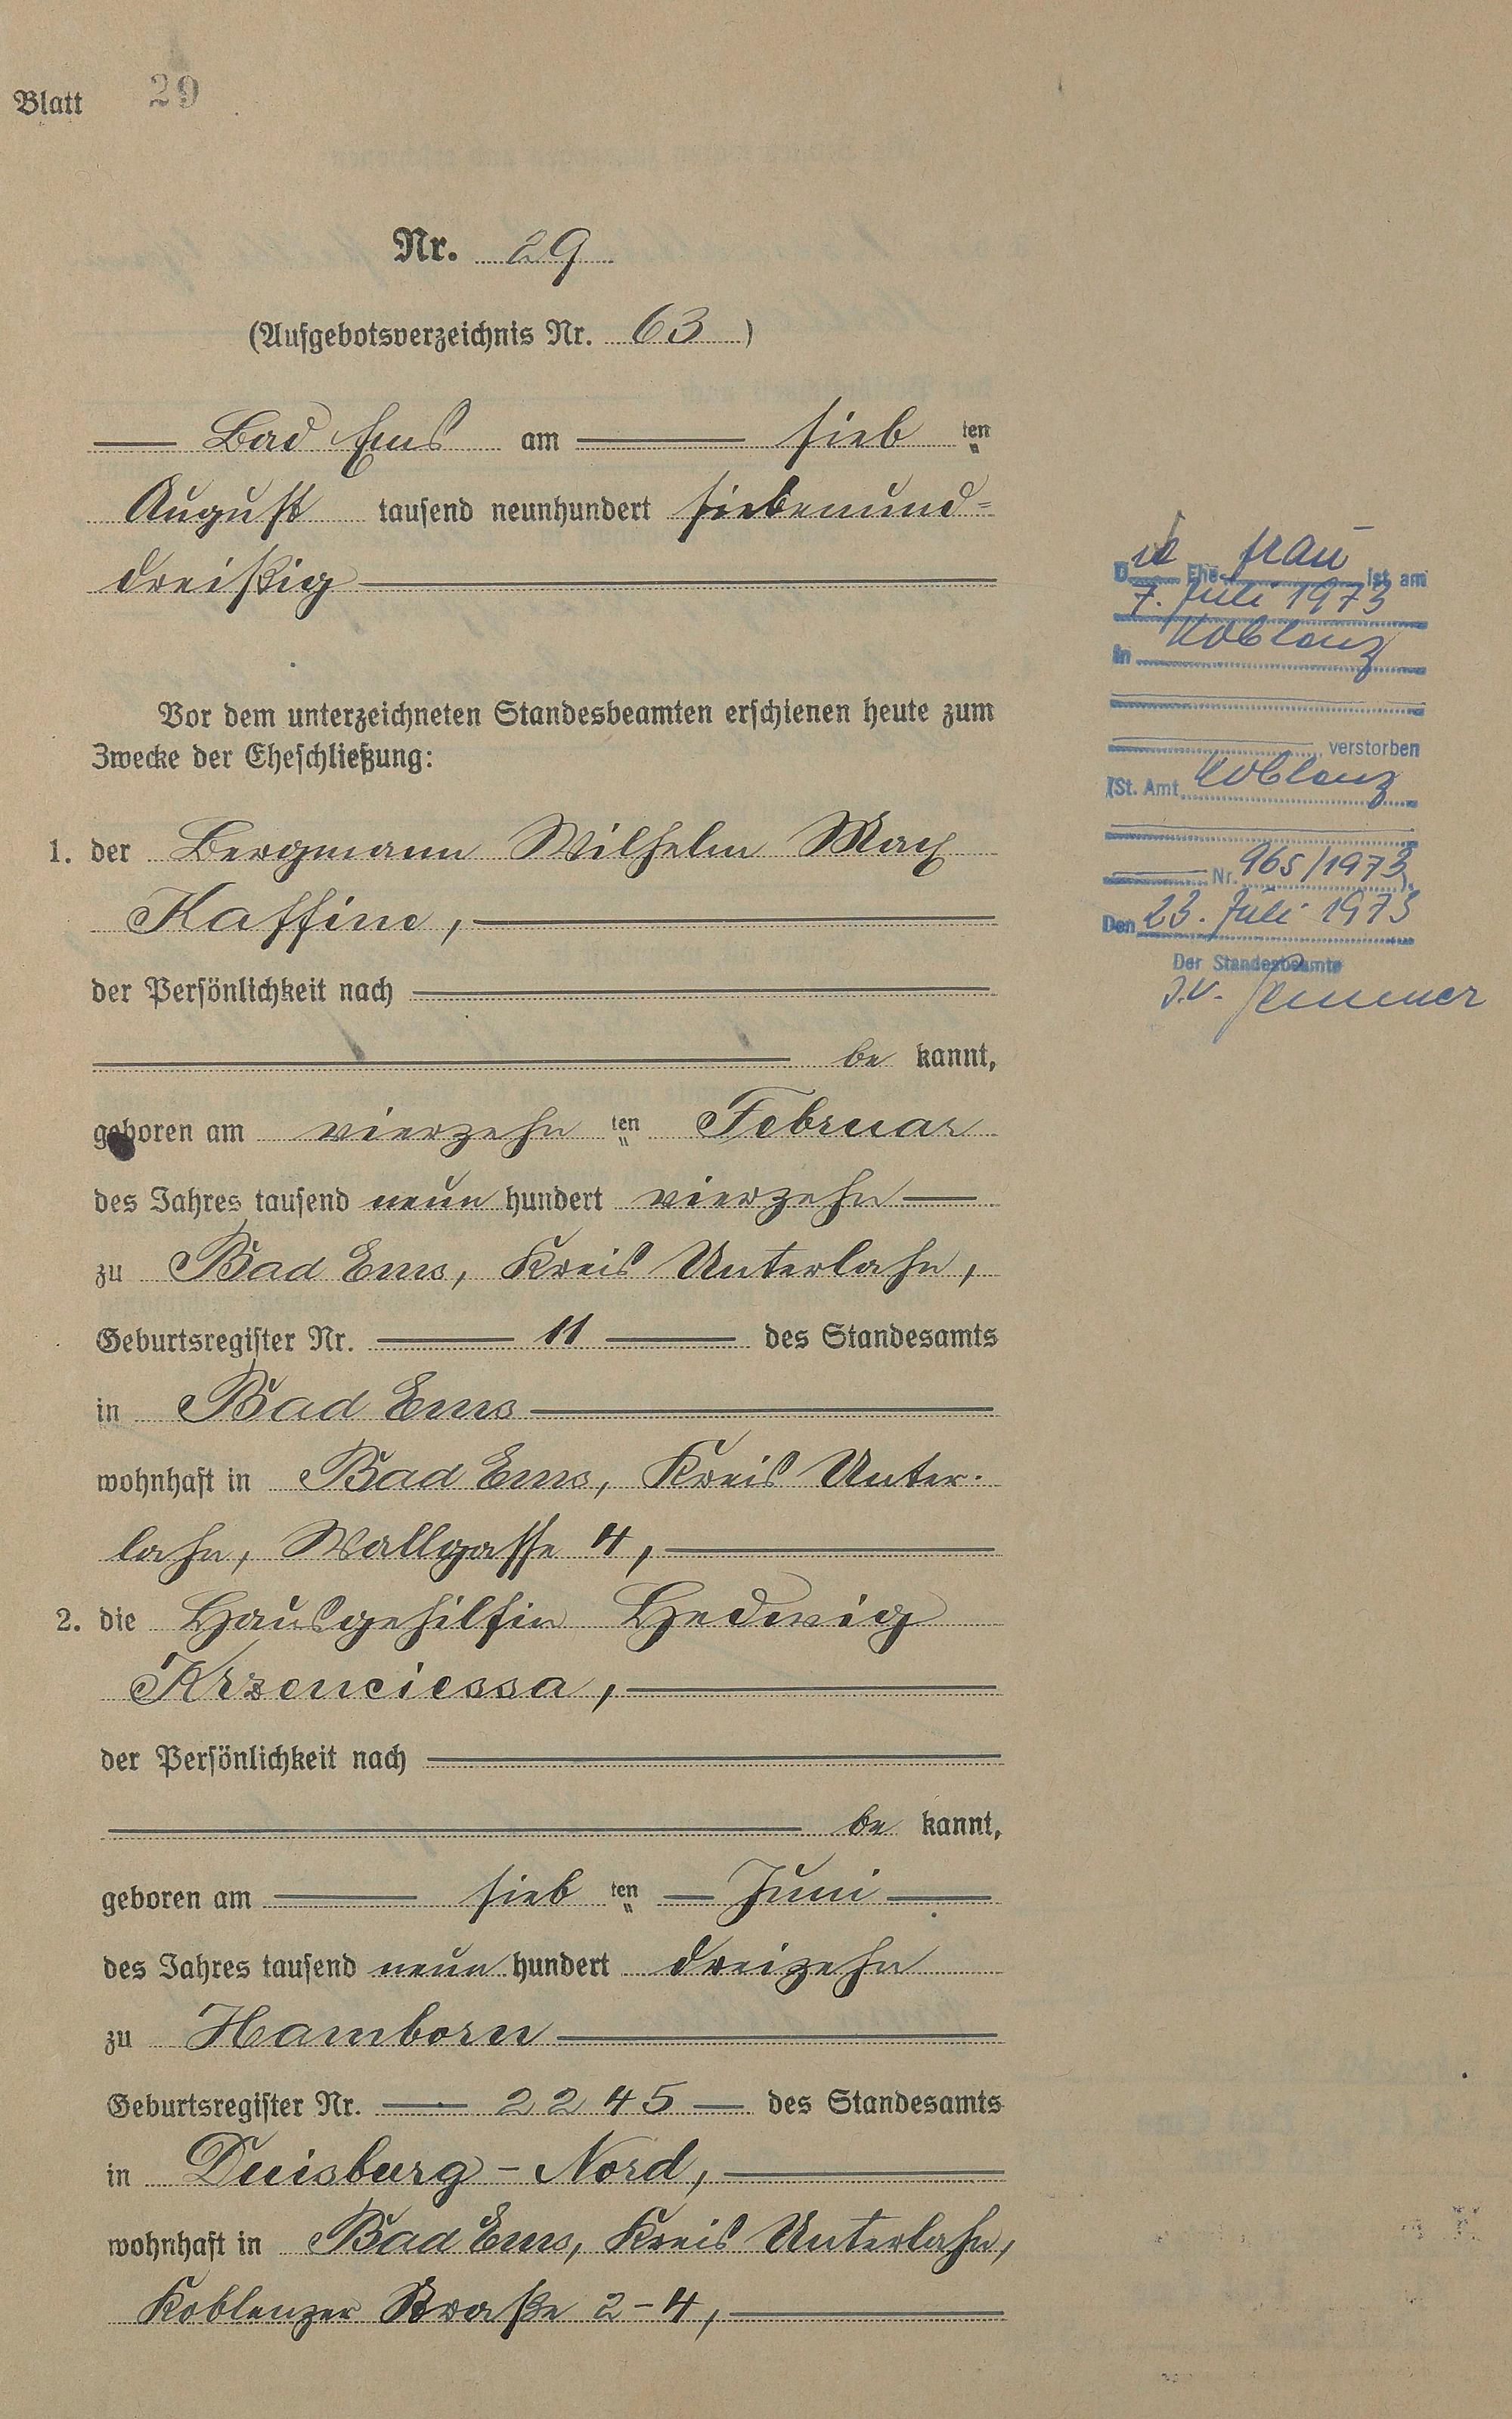 Blatt 29
Nr. 29
(Aufgebotsverzeichnis Nr. 63)
Bad Ems am sieb ten
August tausend neunhundert siebenund=
dreißig
Vor dem unterzeichneten Standesbeamten erschienen heute zum
Zwecke der Eheschließung:
1. der Bergmann Wilhelm Max
Kaffine,
der Persönlichkeit nach
be kannt,
geboren am vierzehn ten Februar
des Jahres tausend neun hundert vierzehn
zu Bad Ems, Kreis Unterlahn,
Geburtsregister Nr. 11 des Standesamts
in Bad Ems
wohnhaft in Bad Ems, Kreis Unter-
lahn, Wallgasse 4,
2. die Hausgehilfin Hedwig
Krzenciessa,
der Persönlichkeit nach
be kannt,
geboren am sieb ten Juni
des Jahres tausend neun hundert dreizehn
zu Hamborn
Geburtsregister Nr. 2245 des Standesamts
in Duisburg-Nord,
wohnhaft in Bad Ems, Kreis Unterlahn,
Koblenzer Straße 2-4,
Die Ehe frau ist am
7. Juli 1973
in Koblenz
verstorben
(St. Amt Koblenz
Nr. 965/1973)
Den 23. Juli 1973
Der Standesbeamte
I.V.